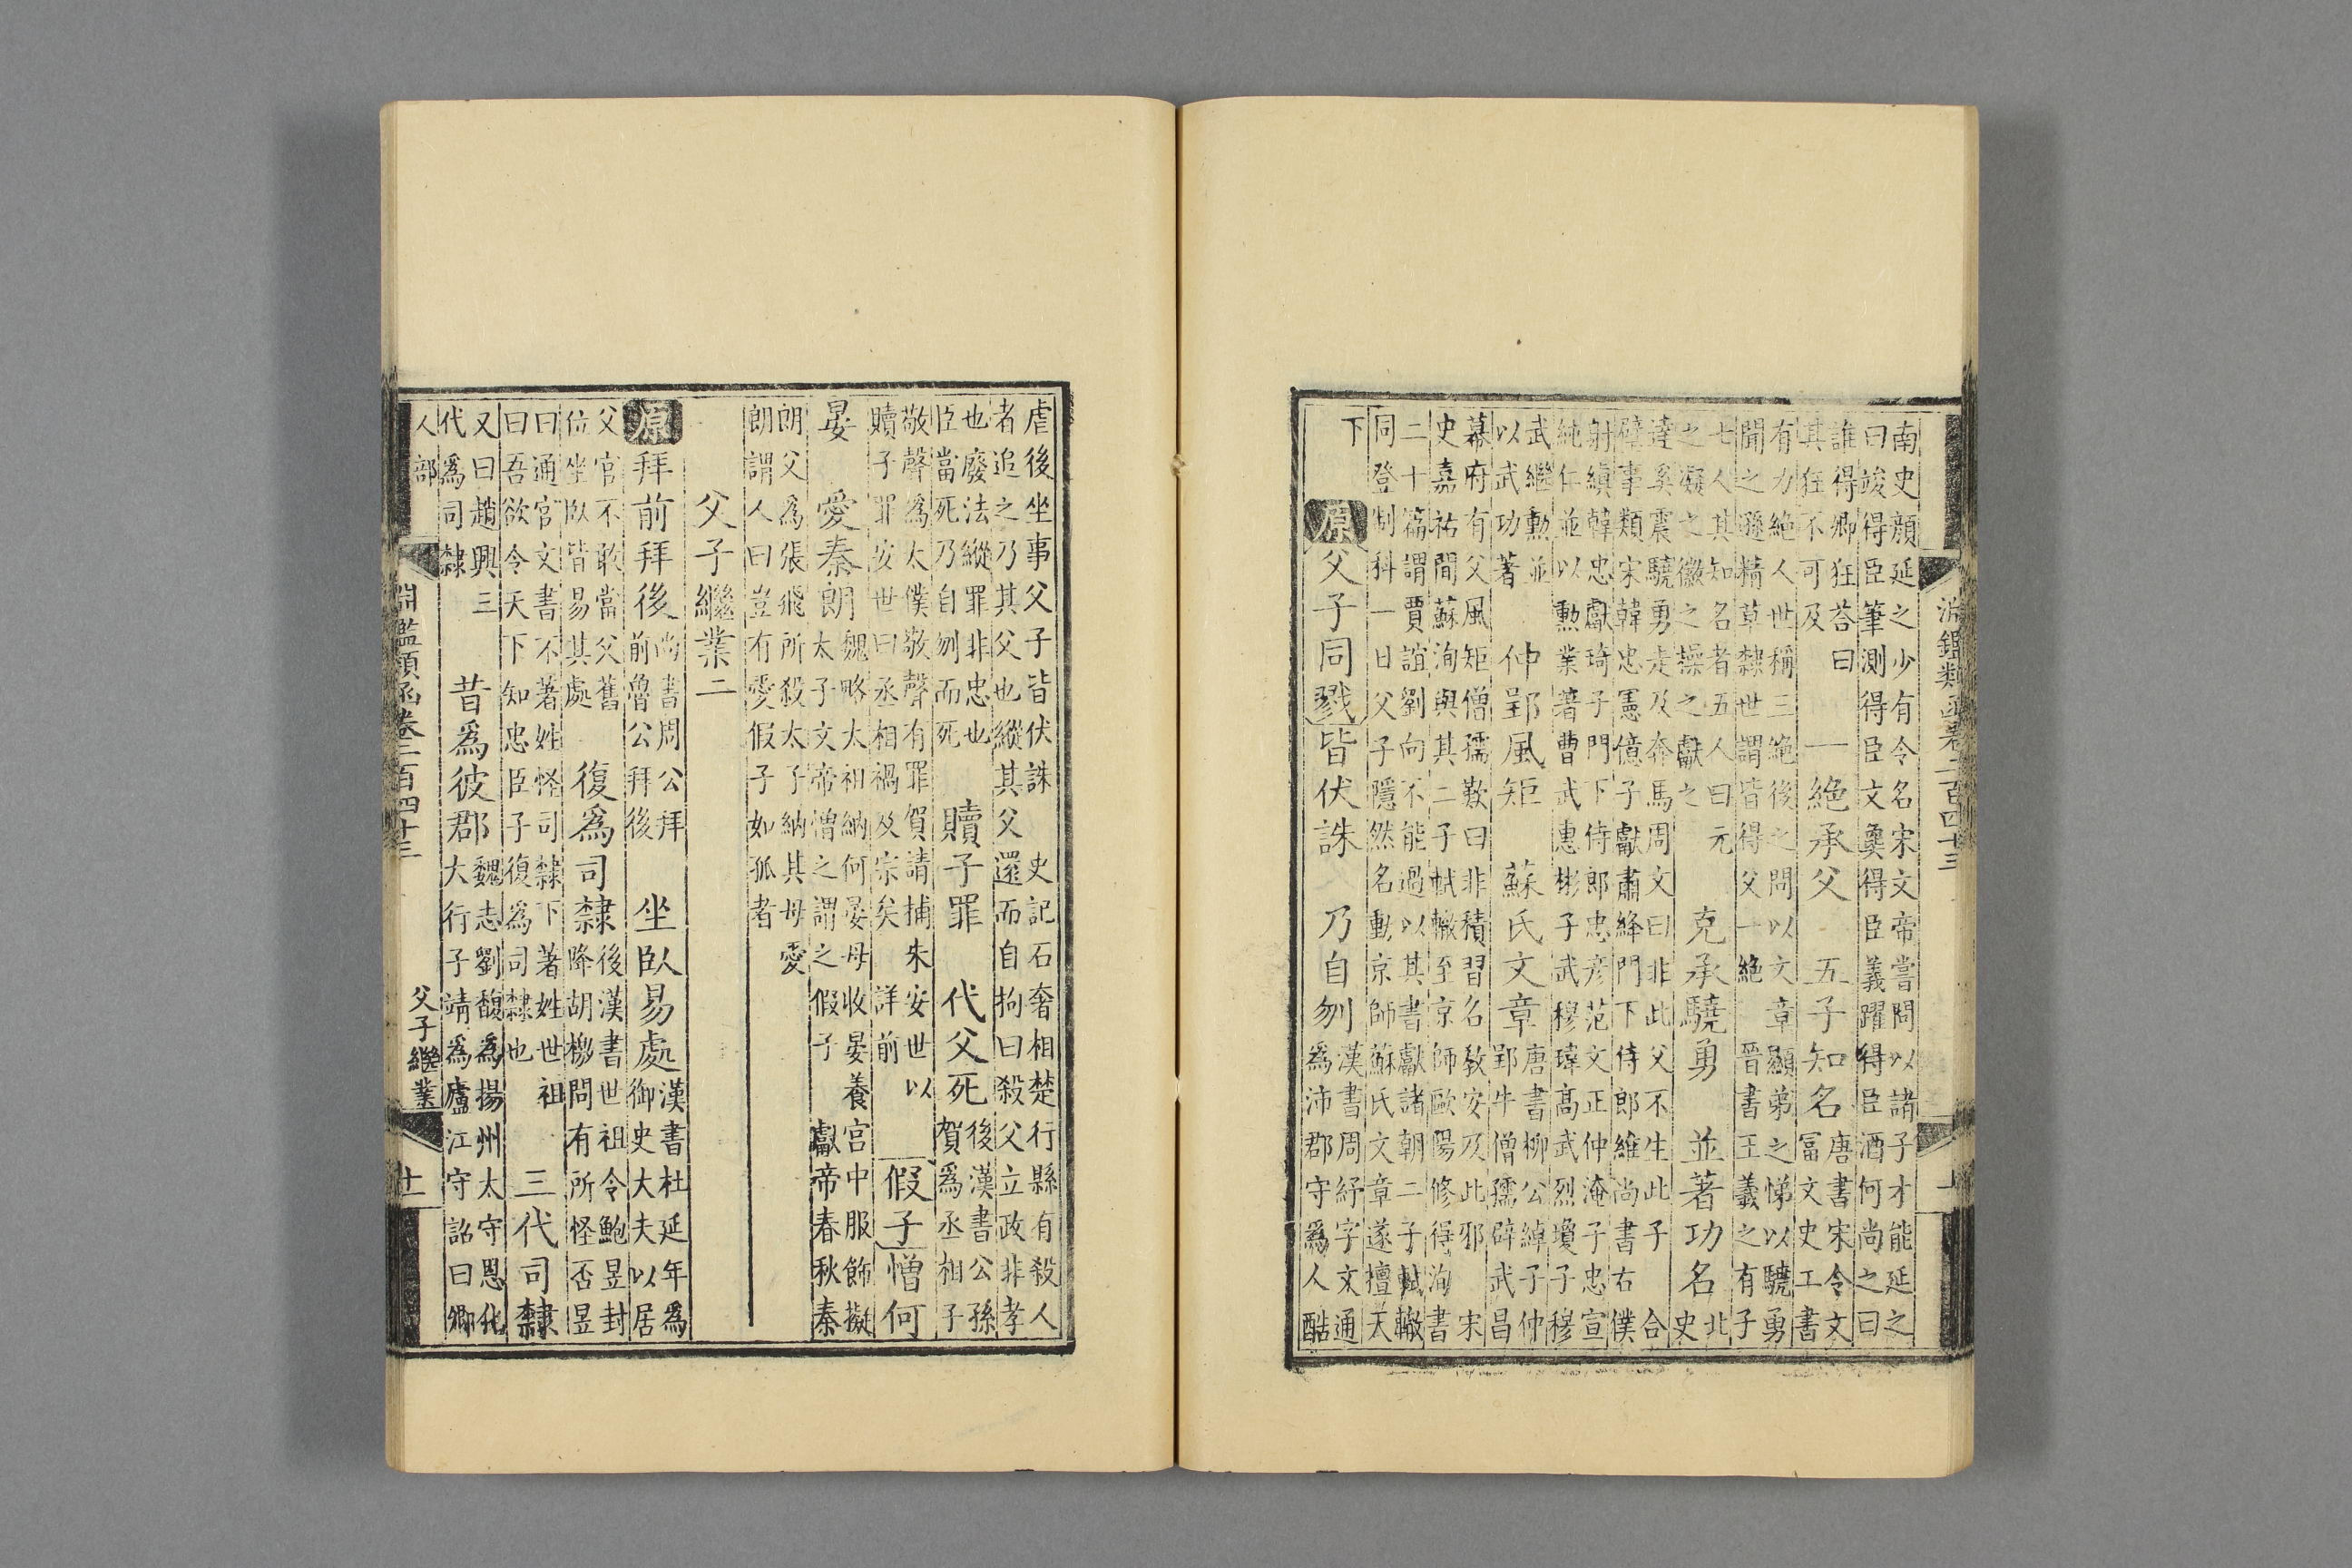 淵鑑類函卷二百四十三
南史顔延之少有令名宋文帝嘗問以諸子才能延之
曰竣得臣筆測得臣文㚟得臣義躍得臣酒何尚之曰
誰得卿狂荅曰
其狂不可及
一絶承父 五子知名
唐書宋令文
富文史工書
有力絶人世稱三絶後之問以文章顯弟之悌以驍勇
聞之遜精草隸世謂皆得父一絶 晉書王羲之有子
七人其知名者五人曰元
之凝之徽之操之獻之
克承驍勇 並著功名
北
史
達奚震驍勇走及奔馬周文曰非此父不生此子 合
璧事類宋韓忠憲億子獻肅絳門下侍郎維尚書右僕
射縝韓忠獻琦子門下侍郎忠彦范文正仲淹子忠宣
純仁並以勲業著曹武惠彬子武穆瑋高武烈瓊子穆
武繼勲並
以武功著
仲郢風矩 蘇氏文章
唐書柳公綽子仲
郢牛僧孺辟武昌
幕府有父風矩僧孺歎曰非積習名教安及此邪 宋
史嘉祐間蘇洵與其二子軾轍至京師歐陽修得洵書
二十篇謂賈誼劉向不能過以其書獻諸朝二子軾轍
同登制科一日父子隱然名動京師蘇氏文章遂擅天
下
原父子同戮皆伏誅 乃自刎
漢書周紆字文通
爲沛郡守爲人酷
虐後坐事父子皆伏誅 史記石奢相楚行縣有殺人
者追之乃其父也縱其父還而自拘曰殺父立政非孝
也廢法縱罪非忠也
臣當死乃自刎而死
贖子罪 代父死
後漢書公孫
賀爲丞相子
敬聲爲太僕敬聲有罪賀請捕朱安世以
贖子罪安世曰丞相禍及宗矣 詳前
假子憎何
晏 愛秦朗
魏略太祖納何晏母收晏養宮中服飾擬
太子文帝憎之謂之假子 獻帝春秋秦
朗父爲張飛所殺太子納其母愛
朗謂人曰豈有愛假子如孤者
父子繼業二
原拜前拜後
尚書周公拜
前魯公拜後
坐臥易處
漢書杜延年爲
御史大夫以居
父官不敢當父舊
位坐臥皆易其處
復爲司隸
後漢書世祖令鮑昱封
降胡檄問有所怪否昱
曰通官文書不著姓怪司隸下著姓世祖
曰吾欲令天下知忠臣子復爲司隸也
三代司隸
又曰趙興三
代爲司隸
昔爲彼郡
魏志劉馥爲揚州太守恩化
大行子靖爲廬江守詔曰卿
人部 淵鑑類函卷二百四十三 父子繼業 十一